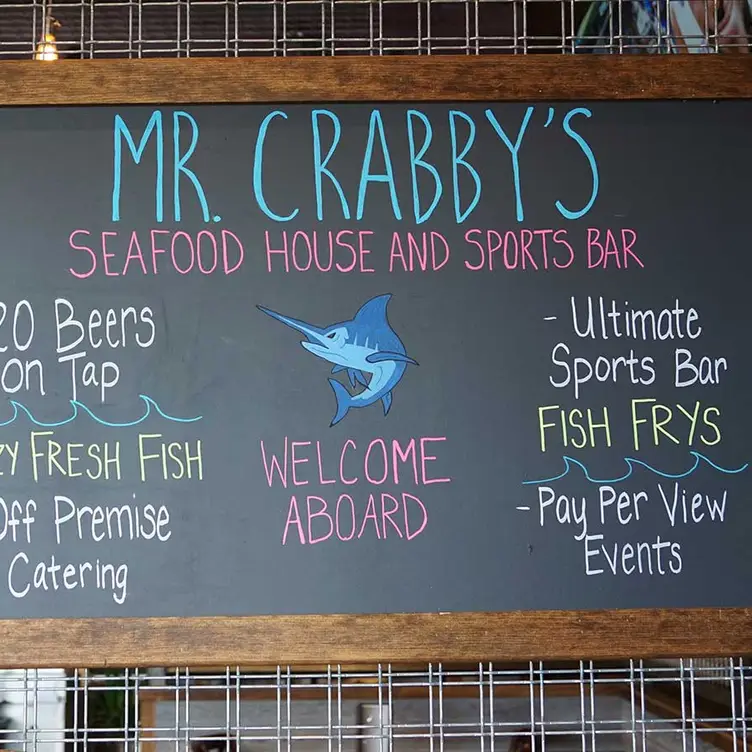 MR. CRABBY'S
SEAFOOD HOUSE AND SPORTS BAR
20 Beers
on Tap
FRESH FISH
Off Premise
Catering
WELCOME
ABOARD
- Ultimate
Sports Bar
FISH FRYS
- Pay Per View
Events